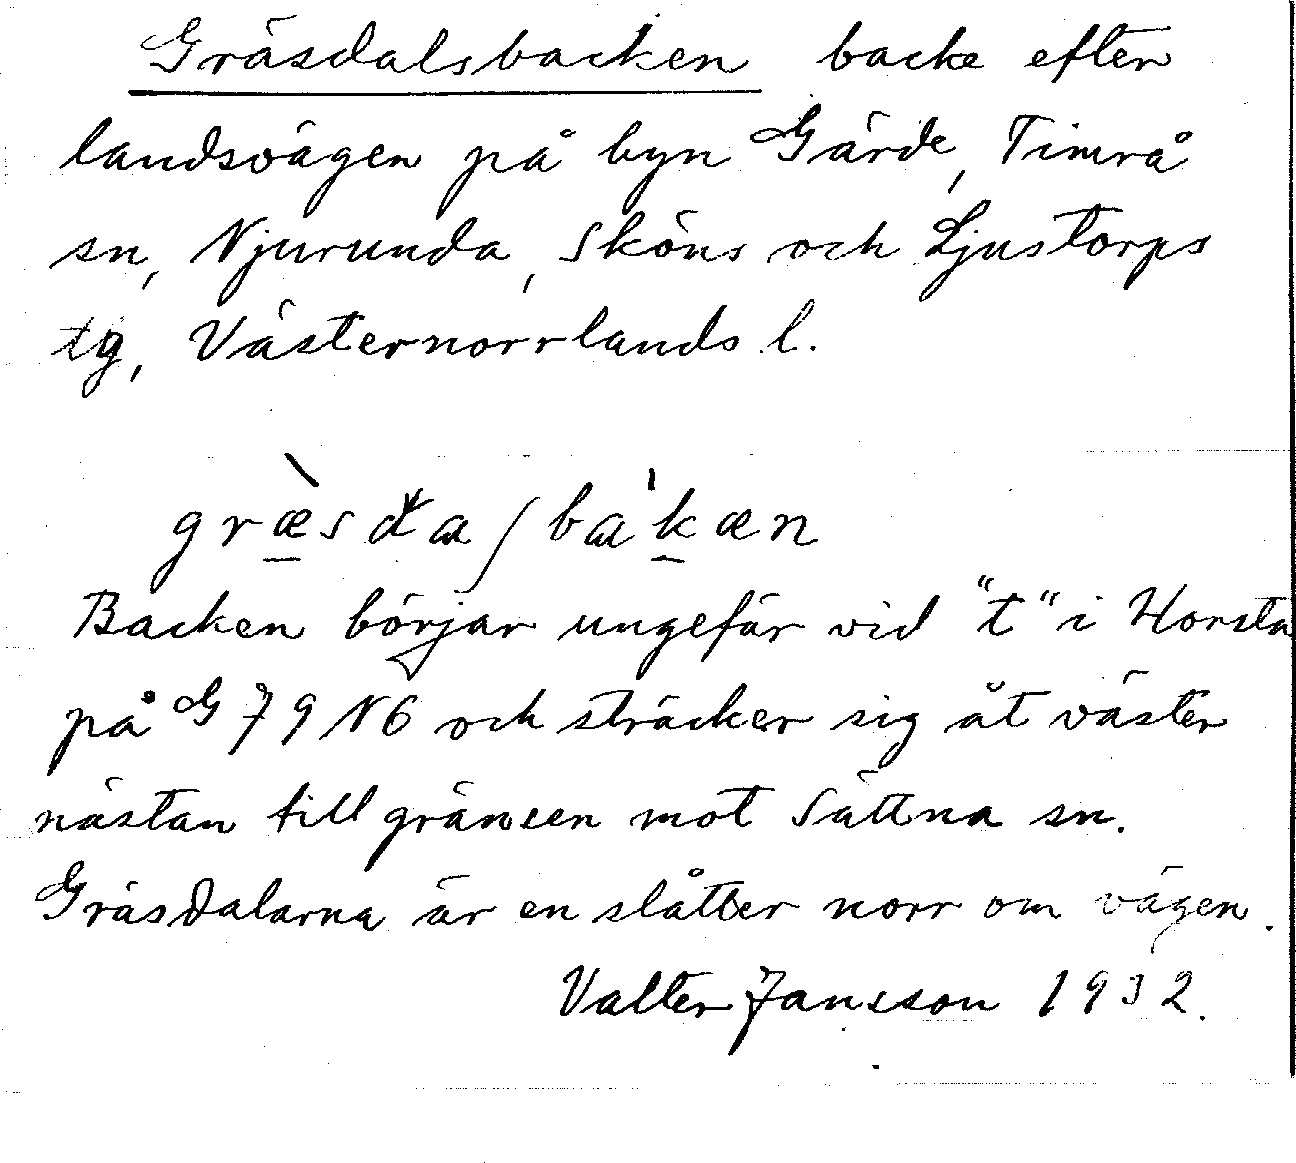 Gräsdalsbacken backe efter
landsvägen på byn Gärde, Timrå
sn, Njurunda, Sköns och Ljustorps
tg, Västernorrlands l.
græ̀sđaʃbakæn
Backen börjar ungefär vid "t" i Horsta
på G 79 N6 och sträcker sig åt väster
nästan till gränsen mot Sättna sn.
Gräsdalarna är en slåtter norr om vägen.
Valter Jansson 1932.